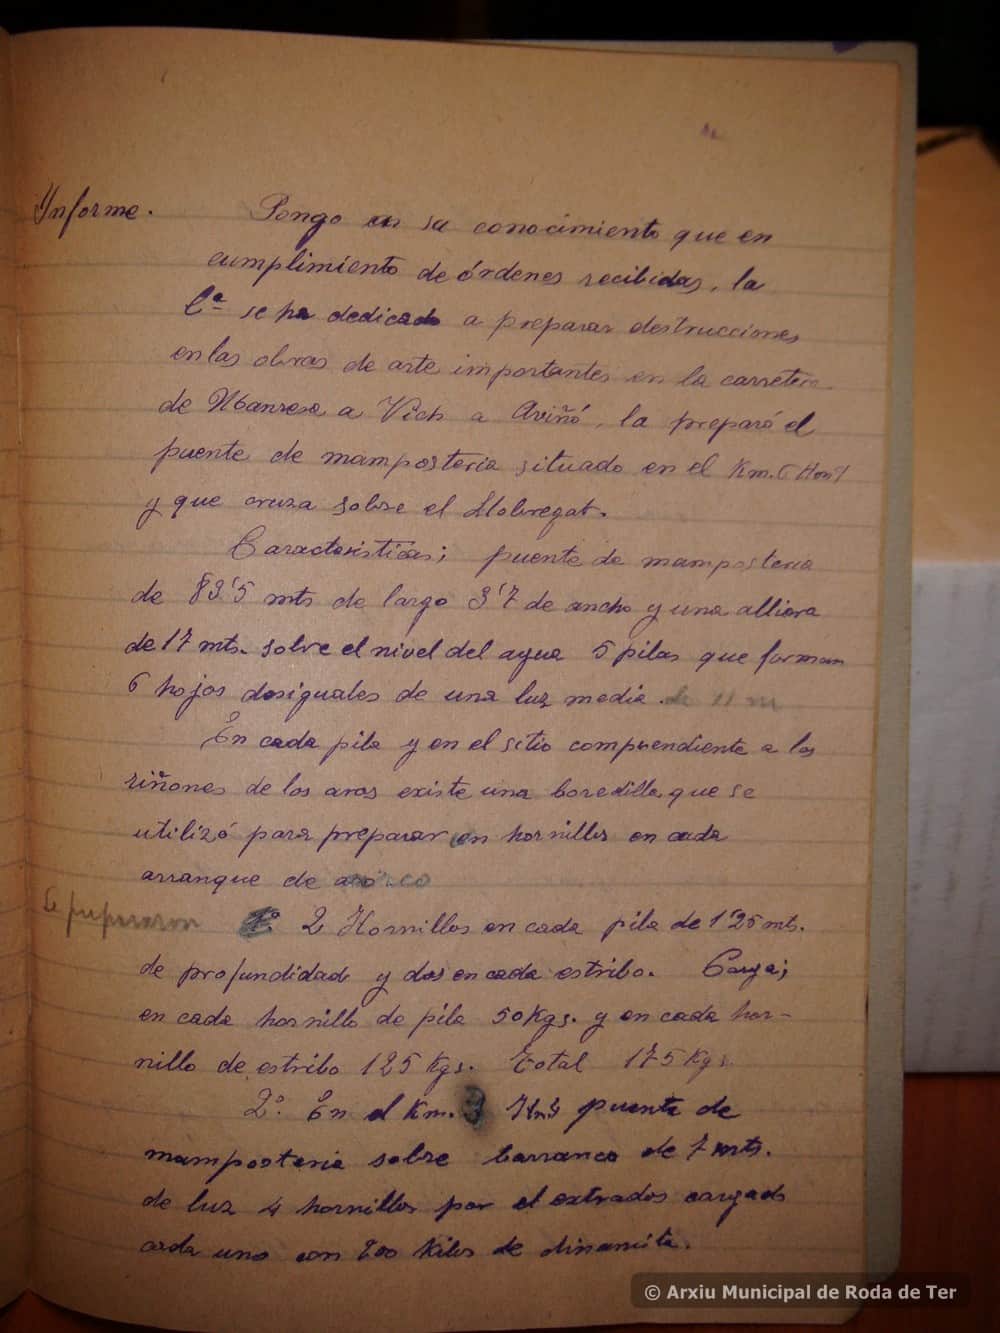 Informe. Pongo en su conocimiento que en
cumplimiento de órdenes recibidas, la
Cª se ha dedicado a preparar destrucciones
en las obras de arte importantes en la carretera
de Manresa a Vich a Aviñó, la preparó el
puente de mamposteria situado en el Km. 6
y que cruza sobre el Llobregat.
Caracteristicas; puente de mamposteria
de 83'5 mts de largo 3'7 de ancho y una altura
de 17 mts. sobre el nivel del agua 5 pilas que forman
6 hojos desiguales de una luz media de 11 m
En cada pila y en el sitio comprendiente a los
riñones de los aros existe una boredilla que se
utilizó para preparar en hornillos en cada
arranque de arco
Se prepararon 1º 2 Hornillos en cada pila de 1'25 mts.
de profundidad y dos en cada estribo. Carga;
en cada hornillo de pila 50 Kgs. y en cada hor-
nillo de estribo 125 Kgs. Total 175 Kgs.
2º. En el Km. 3 puente de
mamposteria sobre barranco de 7 mts.
de luz 4 hornillos por el extrados cargado
cada uno con kilos de dinamita.
© Arxiu Municipal de Roda de Ter